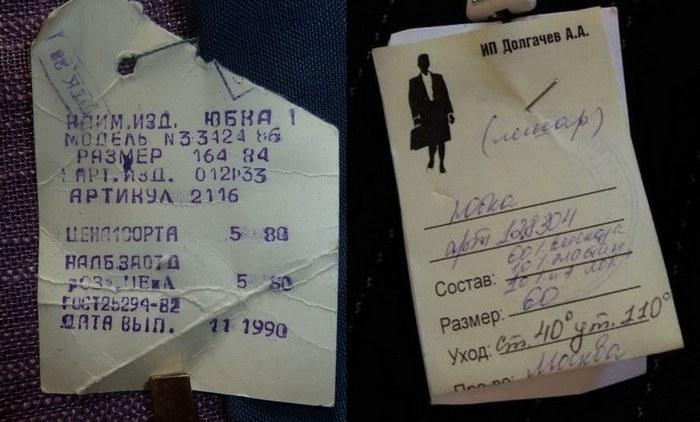 НАИМ.ИЗД. ЮБКА 1
МОДЕЛЬ N33424 86
РАЗМЕР 164 84
АРТ.ИЗД. 012Р33
АРТИКУЛ 2116
ЦЕНА1СОРТА 5 80
НАДБ.ЗАОТД
РОЗН.ЦЕНА 5 80
ГОСТ25294-82
ДАТА ВЫП. 11 1990
ИП Долгачев А.А.
юбка
арт. 128304
Состав: 60%
Размер: 60
Уход: ст. 40° ут. 110°
Москва